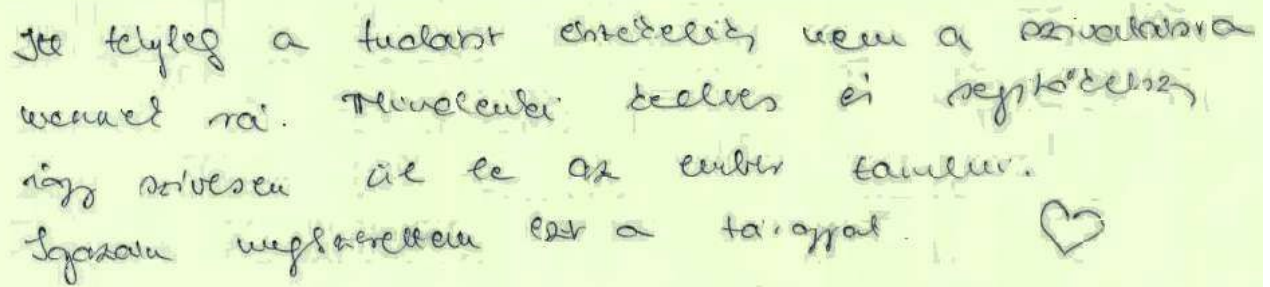 Itt tényleg a tudást értékelik, nem a szivatásra
mennek rá. Mindenki kedves és segítőkész,
így szívesen ül le az ember tanulni.
Igazán megszerettem ezt a tárgyat. ♡